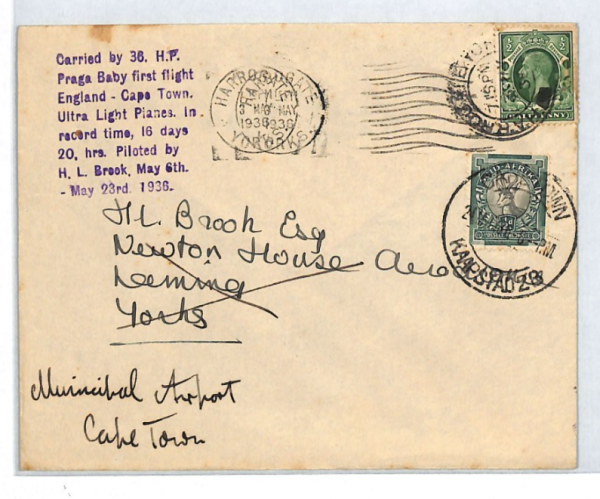 Carried by 36. H.P.
Praga Baby first flight
England - Cape Town.
Ultra Light Planes. In
record time, 16 days
20, hrs. Piloted by
H. L. Brook, May 6th.
- May 23rd. 1936.
HARROGATE
1936
YORKS
HALFPENNY
SUID-AFRIKA
KAAPSTAD
H.L. Brook Esq
Newton House
Leeming
Yorks
Municipal Airport
Cape Town